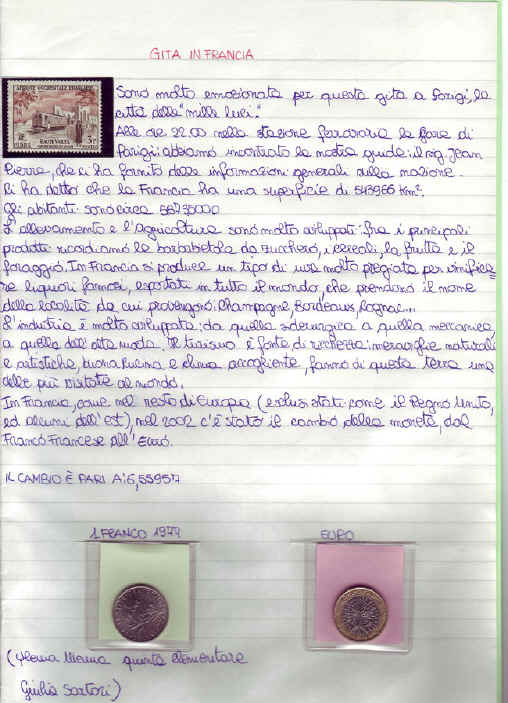 GITA IN FRANCIA
AFRIQUE OCCIDENTALE FRANÇAISE
HAUTE VOLTA
Sono molto emozionata per questa gita a Parigi, la
città delle "mille luci."
Alle ore 22.00 nella stazione ferroviaria la Gare di
Parigi: abbiamo incontrato la nostra guida: il sig. Jean
Pierre, che ci ha fornito delle informazioni generali sulla nazione.
Ci ha detto che la Francia ha una superficie di 543965 Km².
Gli abitanti sono circa 58735000
L'allevamento e l'Agricoltura sono molto sviluppati: fra i principali
prodotti ricordiamo la barbabietola da zucchero, i cereali, la frutta e il
foraggio. In Francia si produce un tipo di uva molto pregiata per vinifica
re liquori famosi, esportati in tutto il mondo, che prendono il nome
della località da cui provengono: Champagne, Bordeaux, Cognac...
L'industria è molto sviluppata: da quella siderurgica a quella meccanica,
a quella dell'alta moda. Il turismo è fonte di ricchezza: meraviglie naturali
e artistiche, buona cucina e clima accogliente, fanno di questa terra una
delle più visitate al mondo.
In Francia, come nel resto di Europa (esclusi stati come il Regno Unito,
ed alcuni dell'est), nel 2002 c'è stato il cambio della moneta, dal
Franco Francese all'Euro.
IL CAMBIO È PARI A: 6,55957
1 FRANCO 1974
EURO
(quinta elementare
Giulia Sartori)